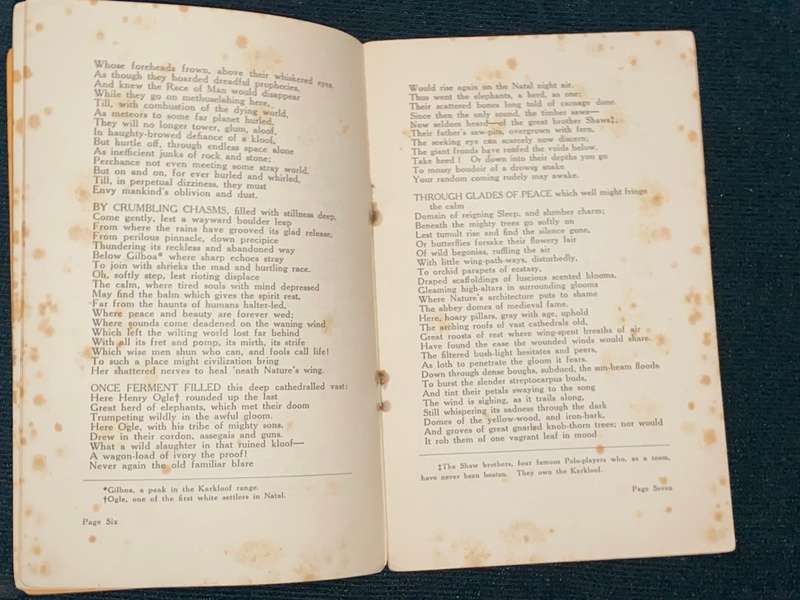 Whose foreheads frown, above their whiskered eyes,
As though they hoarded dreadful prophecies,
And knew the Race of Man would disappear
While they go on methuselahing here,
Till, with combustion of the dying world,
As meteors to some far planet hurled,
They will no longer tower, glum, aloof,
In haughty-browed defiance of a kloof,
But hurtle off, through endless space alone
As inefficient junks of rock and stone;
Perchance not even meeting some stray world,
But on and on, for ever hurled and whirled,
Till, in perpetual dizziness, they must
Envy mankind's oblivion and dust.
BY CRUMBLING CHASMS, filled with stillness deep,
Come gently, lest a wayward boulder leap
From where the rains have grooved its glad release,
From perilous pinnacle, down precipice
Thundering its reckless and abandoned way
Below Gilboa* where sharp echoes stray
To join with shrieks the mad and hurtling race.
Oh, softly step, lest rioting displace
The calm, where tired souls with mind depressed
May find the balm which gives the spirit rest,
Far from the haunts of humans halter-led,
Where peace and beauty are forever wed;
Where sounds come deadened on the waning wind
Which left the wilting world lost far behind
With all its fret and pomp, its mirth, its strife
Which wise men shun who can, and fools call life!
To such a place might civilization bring
Her shattered nerves to heal 'neath Nature's wing.
ONCE FERMENT FILLED this deep cathedralled vast:
Here Henry Ogle† rounded up the last
Great herd of elephants, which met their doom
Trumpeting wildly in the awful gloom.
Here Ogle, with his tribe of mighty sons,
Drew in their cordon, assegais and guns.
What a wild slaughter in that ruined kloof—
A wagon-load of ivory the proof!
Never again the old familiar blare
*Gilboa, a peak in the Karkloof range.
†Ogle, one of the first white settlers in Natal.
Page Six
Would rise again on the Natal night air.
Thus went the elephants, a herd, as one;
Their scattered bones long told of carnage done.
Since then the only sound, the timber saws—
Now seldom heard—of the great brother Shaws‡.
Their father's saw-pits, overgrown with fern,
The seeking eye can scarcely now discern;
The giant fronds have roofed the voids below.
Take heed! Or down into their depths you go
To mousy boudoir of a drowsy snake
Your random coming rudely may awake.
THROUGH GLADES OF PEACE which well might fringe
the calm
Domain of reigning Sleep, and slumber charm;
Beneath the mighty trees go softly on
Lest tumult rise and find the silence gone,
Or butterflies forsake their flowery lair
Of wild begonias, ruffling the air
With little wing-path-ways, disturbedly,
To orchid parapets of ecstasy,
Draped scaffoldings of luscious scented blooms,
Gleaming high-altars in surrounding glooms
Where Nature's architecture puts to shame
The abbey domes of medieval fame.
Here, hoary pillars, gray with age, uphold
The arching roofs of vast cathedrals old,
Great roosts of rest where wing-spent breaths of air
Have found the ease the wounded winds would share.
The filtered bush-light hesitates and peers,
As loth to penetrate the gloom it fears.
Down through dense boughs, subdued, the sun-beam floods
To burst the slender streptocarpus buds,
And tint their petals swaying to the song
The wind is sighing, as it trails along,
Still whispering its sadness through the dark
Domes of the yellow-wood, and iron-bark,
And groves of great gnarled knob-thorn trees; not would
It rob them of one vagrant leaf in mood
‡The Shaw brothers, four famous Polo-players who, as a team,
have never been beaten. They own the Karkloof.
Page Seven